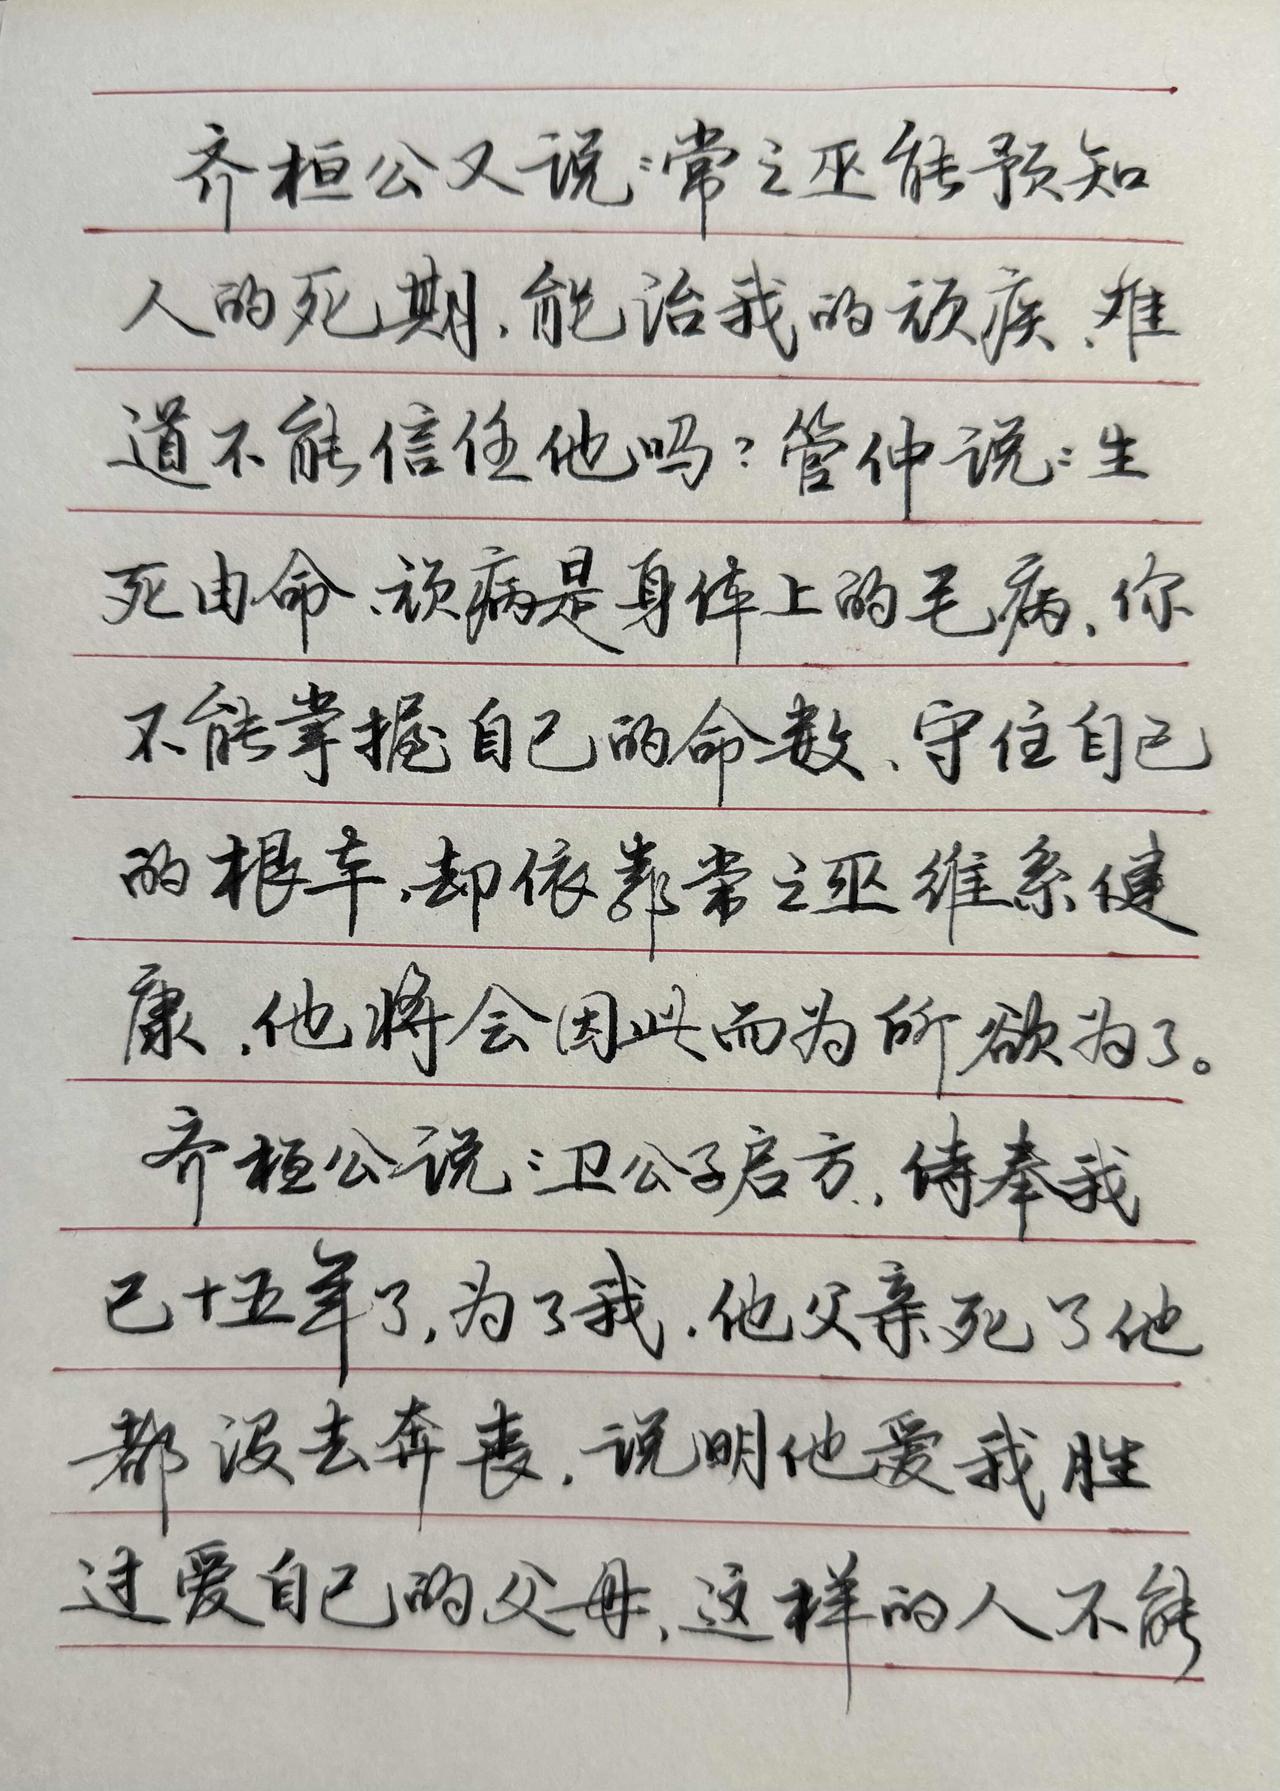 齐桓公又说:常之巫能预知
人的死期,能治我的顽疾,难
道不能信任他吗?管仲说:生
死由命,顽病是身体上的毛病,你
不能掌握自己的命数,守住自己
的根本,却依靠常之巫维系健
康,他将会因此而为所欲为了。
齐桓公说:卫公子启方,侍奉我
已十五年了,为了我,他父亲死了他
都没去奔丧,说明他爱我胜
过爱自己的父母,这样的人不能